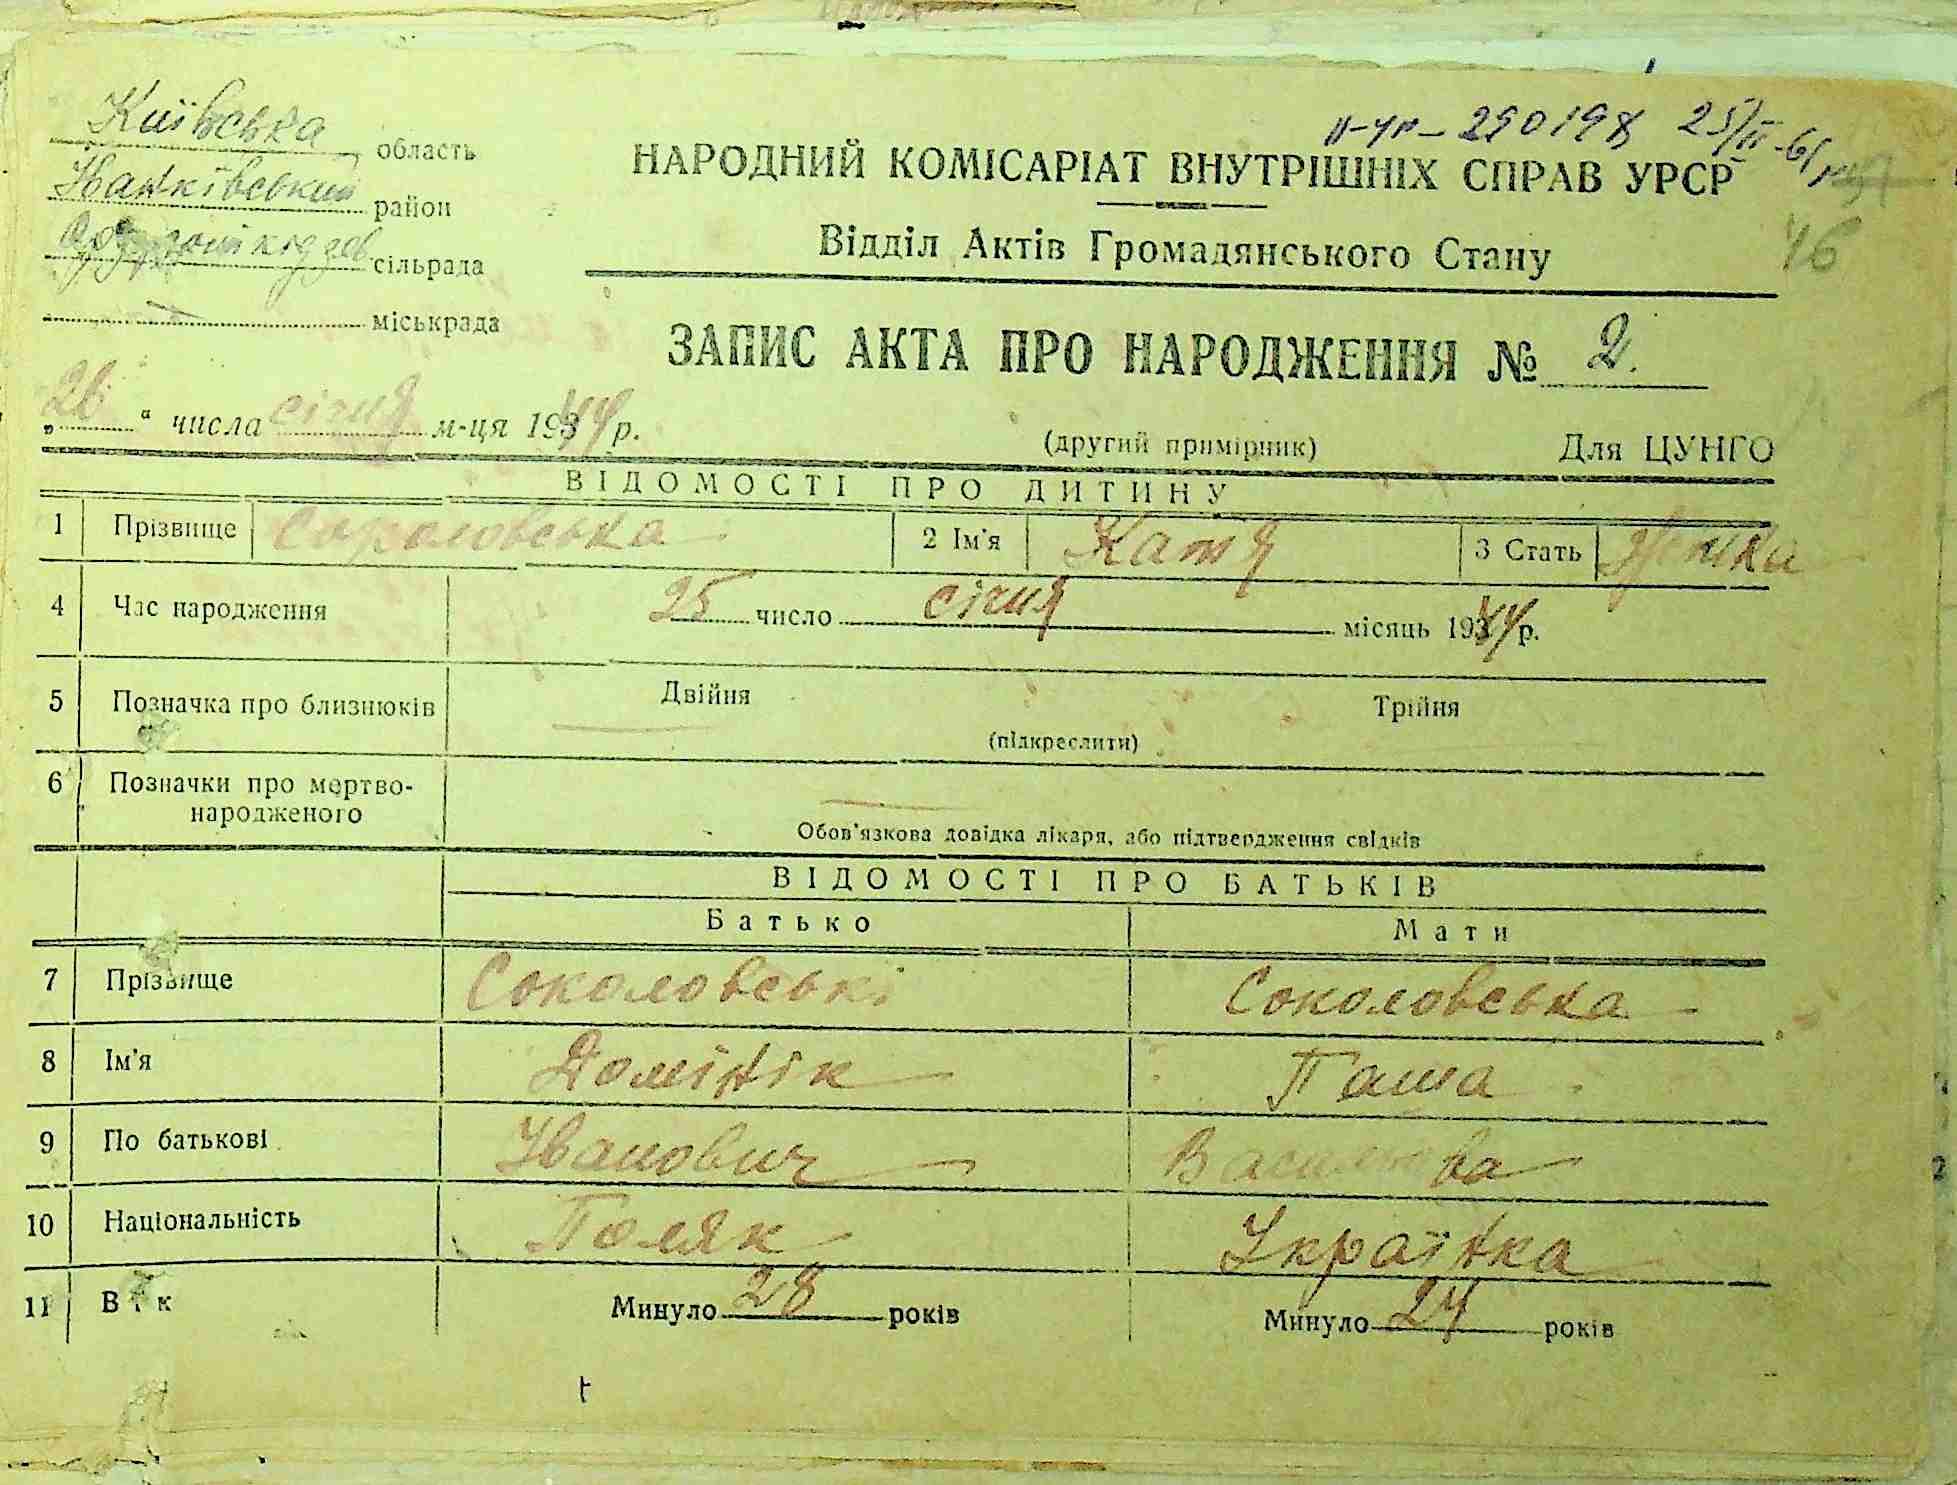 ІІ-ур-290198 25/ІІ-61
Київська область
НАРОДНИЙ КОМІСАРІАТ ВНУТРІШНІХ СПРАВ УРСР
Іванківський район
46
Відділ Актів Громадянського Стану
сільрада
міськрада
ЗАПИС АКТА ПРО НАРОДЖЕННЯ № 2.
„26“ числа січня м-ця 1944 р.
(другий примірник) Для ЦУНГО
ВІДОМОСТІ ПРО ДИТИНУ
1 Прізвище Сороловська 2 Ім'я Катя 3 Стать Жінка
4 Час народження 25 число січня місяць 1944 р.
5 Позначка про близнюків Двійня Трійня
(підкреслити)
6 Позначки про мертво-
народженого
Обов'язкова довідка лікаря, або підтвердження свідків
ВІДОМОСТІ ПРО БАТЬКІВ
Батько Мати
7 Прізвище Соколовські Соколовська
8 Ім'я Домінік Паша
9 По батькові Іванович
10 Національність Поляк Українка
11 Вік Минуло 28 років Минуло 24 років